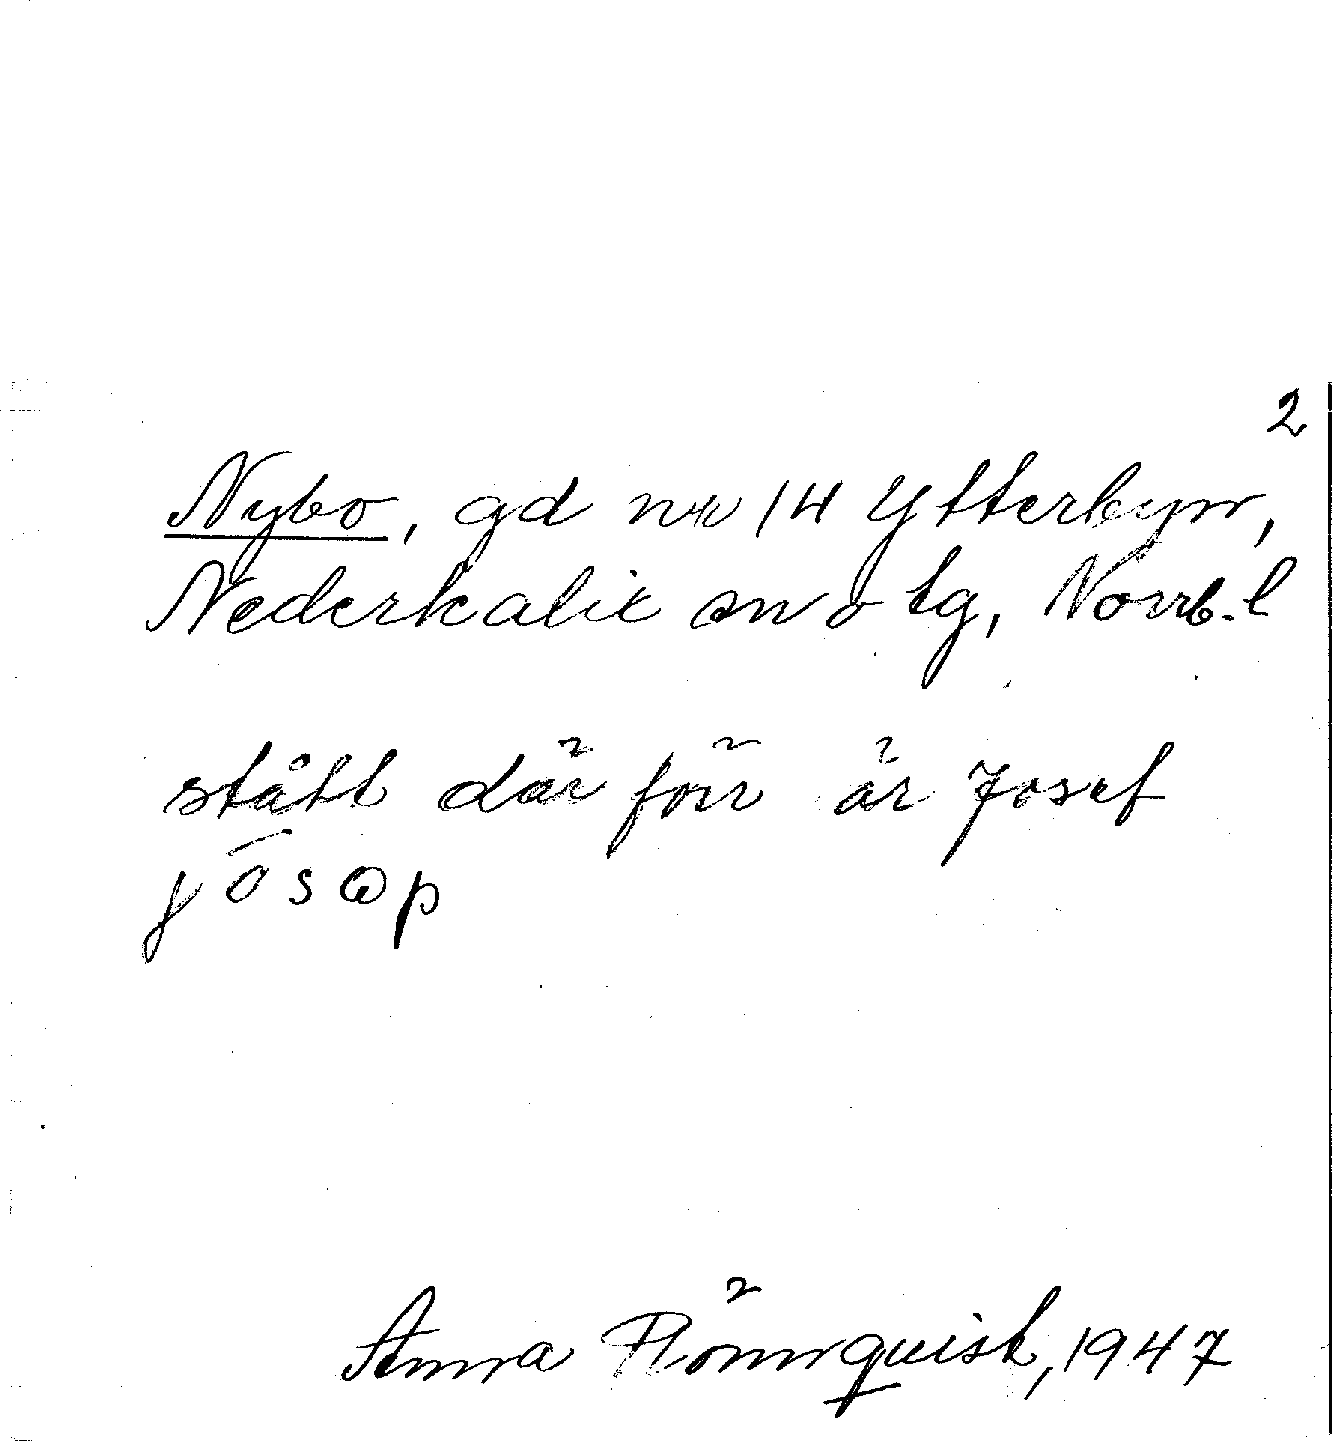 2
Nybo, gd nr 14 Ytterbyn,
Nederkalix sn o tg, Norrb. l
stått där förr är Josef
jōsap
Anna Rönnquist, 1947